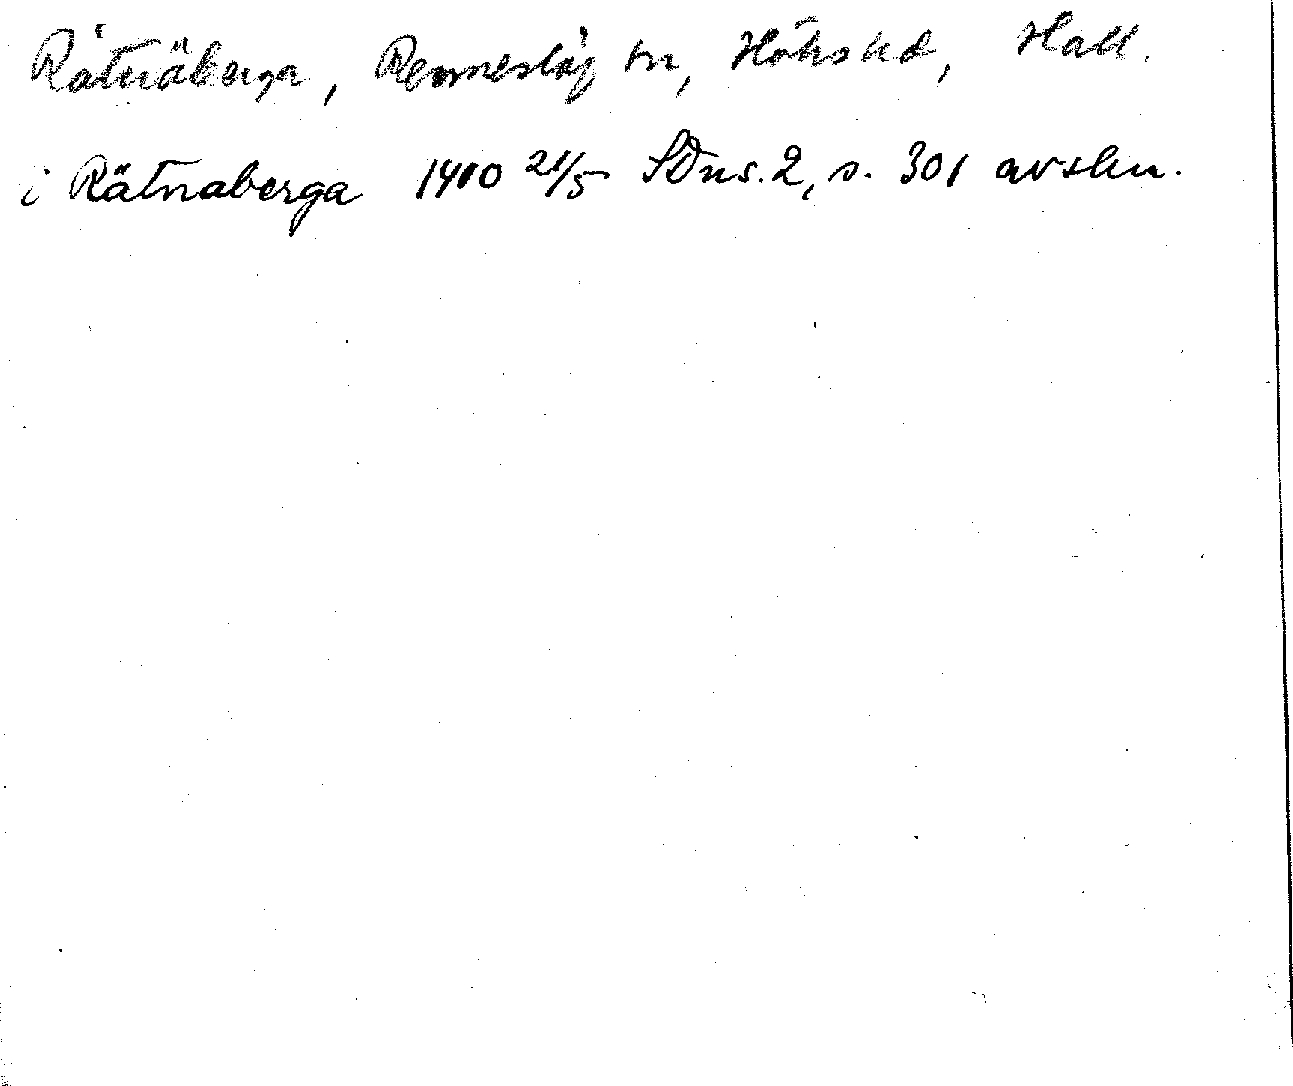 Råtnäberga, Renneslöj sn, Höks hd, Hall.
i Rätnaberga 1410 21/5 SDns. 2, s. 301 avskr.